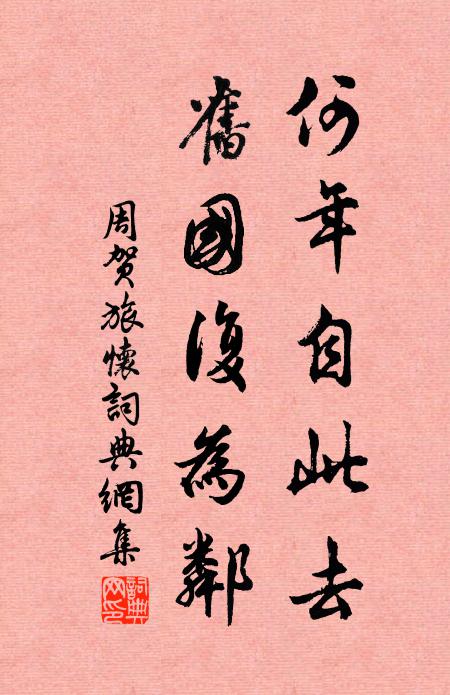 何年自此去
舊國復為鄰
周賀旅懷詞典網集
詞典網印